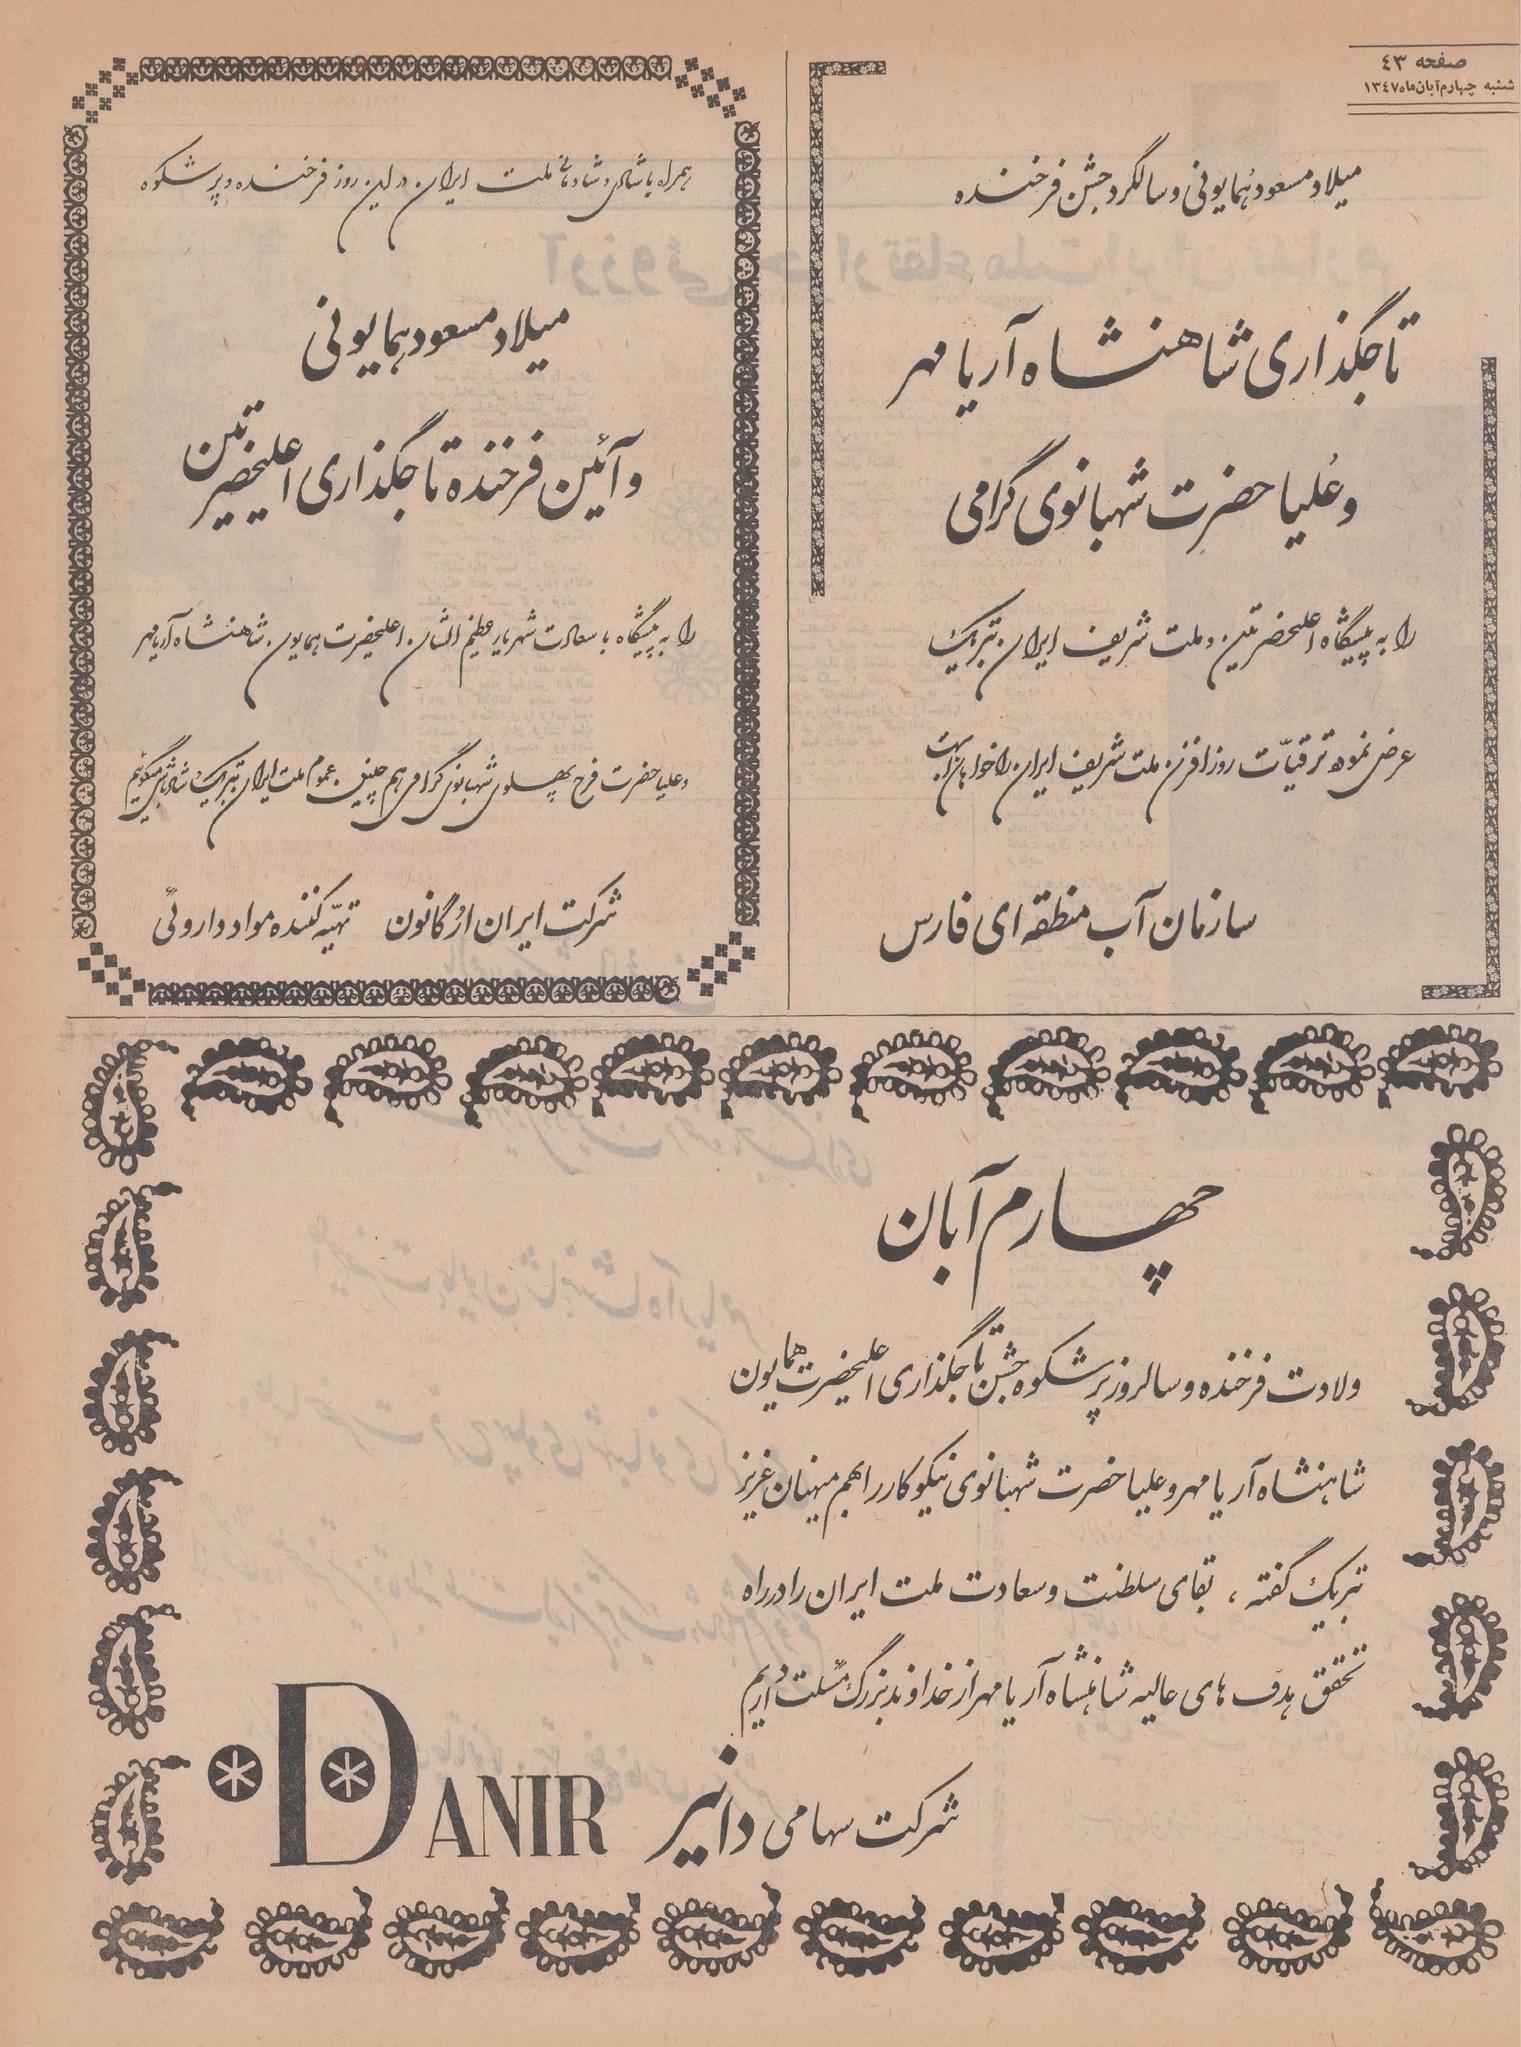 صفحه ۴۳
شنبه چهارم آبان ماه ۱۳۴۷
میلاد مسعود همایونی و سالگرد جشن فرخنده
تاجگذاری شاهنشاه آریامهر
و علیا حضرت شهبانوی گرامی
را به پیشگاه اعلیحضرتین و ملت شریف ایران تبریک
عرض نموده ترقیّات روزافزون ملت شریف ایران را خواهانست
سازمان آب منطقه ای فارس
همراه با شادی و شادمانی ملت ایران در این روز فرخنده و پرشکوه
میلاد مسعود همایونی
و آئین فرخنده تاجگذاری اعلیحضرتین
را به پیشگاه با سعادت شهریار عظیم الشان اعلیحضرت همایون شاهنشاه آریامهر
و علیا حضرت فرح پهلوی شهبانوی گرامی هم چنین عموم ملت ایران تبریک و شادباش میگوئیم
شرکت ایران ارگانون تهیّه کننده مواد داروئی
چهارم آبان
ولادت فرخنده و سالروز پرشکوه جشن تاجگذاری اعلیحضرت همایون
شاهنشاه آریامهر و علیا حضرت شهبانوی نیکوکار را بهم میهنان عزیز
تبریک گفته ، بقای سلطنت و سعادت ملت ایران را در راه
تحقق هدف های عالیه شاهنشاه آریامهر از خداوند بزرگ مسئلت داریم
شرکت سهامی دانیر DANIR